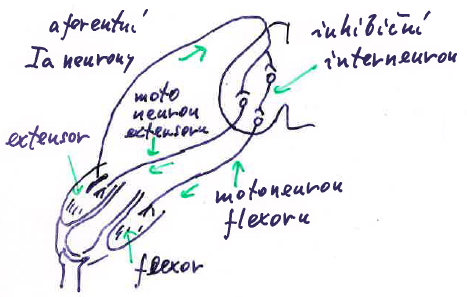 aferentní
Ia neurony
inhibiční
interneuron
moto
neuron
extensoru
extensor
motoneuron
flexoru
flexor